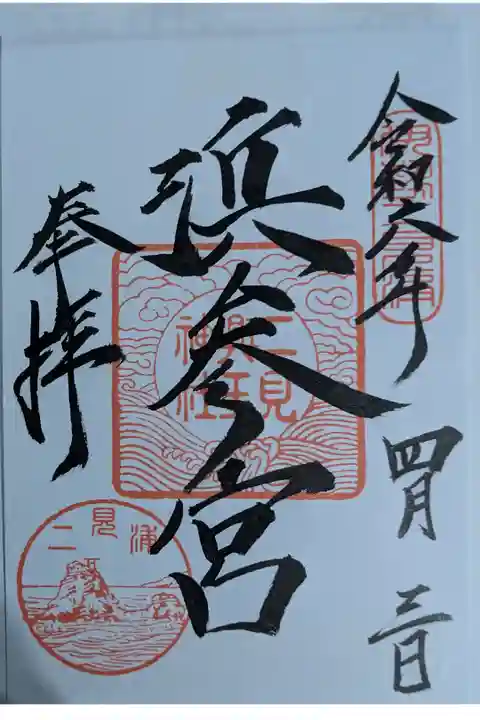 令和六年 四月 三日
浜参宮
二見
興玉
神社
奉拝
二見浦